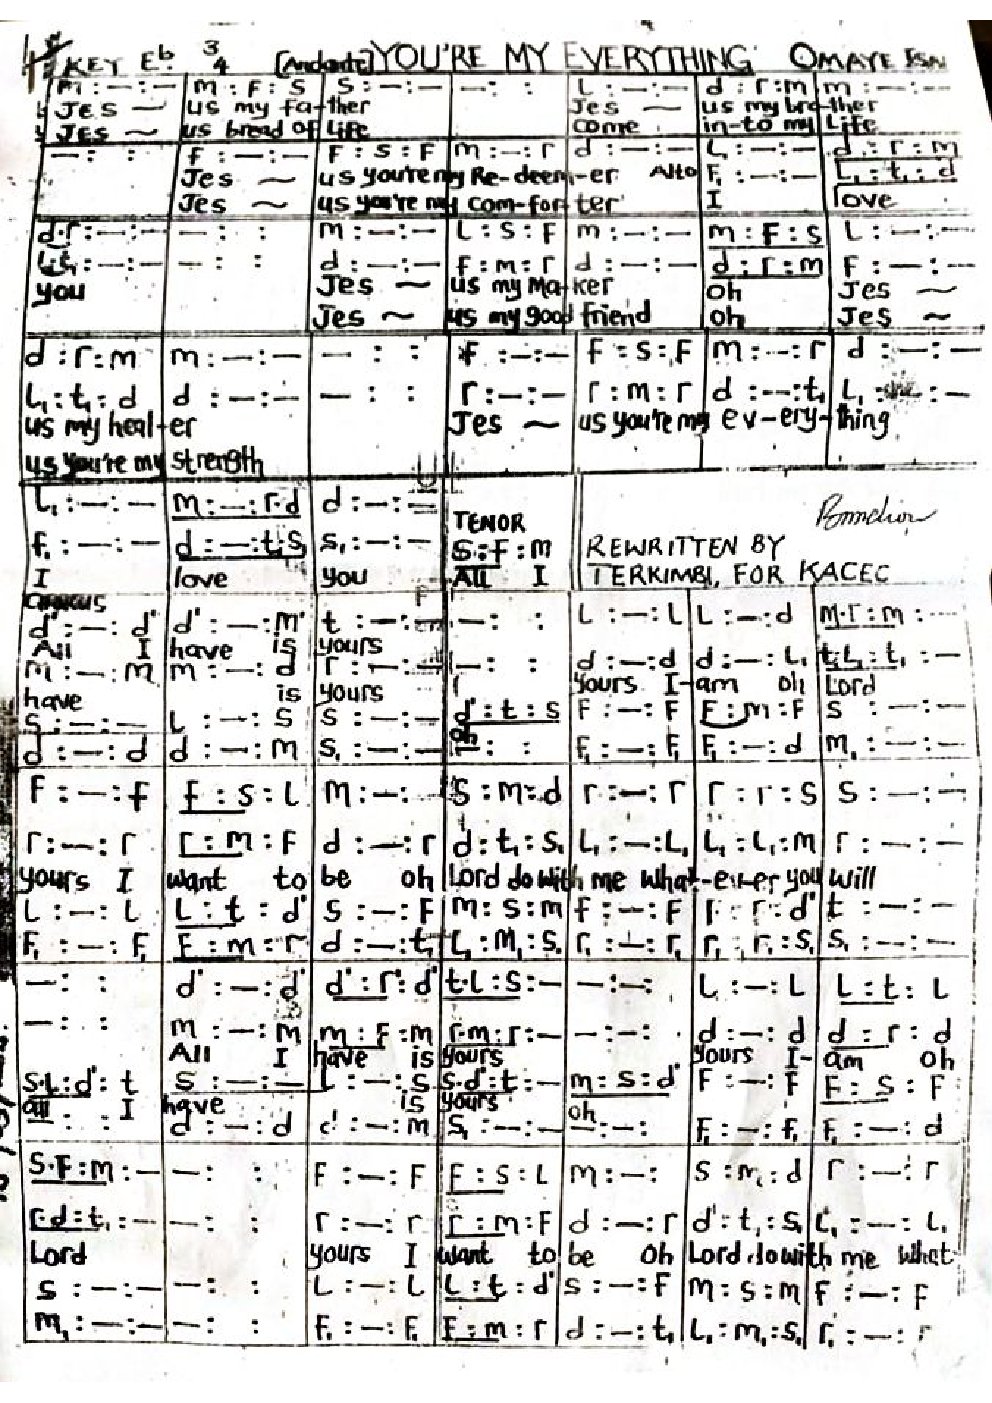 KEY Eb. 3/4 [Andante] YOU'RE MY EVERYTHING OMAYE
m : — : — m : F : S S : — : — — : : L : — : — d : r : m m : — : —
Jes ~ us my fa-ther Jes ~ us my bro-ther
Jes ~ us bread of life come in-to my Life
— : : f : — : — F : S : F m : — : r d : — : — L, : — : — d : r : m
Jes ~ us you're my Re-deem-er Alto F, : — : — L, : t, : d
Jes ~ us you're my com-for-ter I love
d.r : — : — — : : m : — : — L : S : F m : — : — m : F : s L : — : —
: — : — — : : d : — : — f : m : r d : — : — d : r : m F : — : —
you Jes ~ us my Maker oh Jes ~
Jes ~ us my good friend oh Jes ~
d : r : m m : — : — — : : f : — : — F : S : F m : — : r d : — : —
L, : t, : d d : — : — — : : r : — : — r : m : r d : — : t, L, : —
us my heal-er Jes ~ us you're my ev-ery-thing
us you're my strength
L, : — : — m : — : r.d d : — : —
TENOR
f, : — : — d : — : t,.S, s, : — : — S : F : m REWRITTEN BY
I love you All I TERKIMBI, FOR KACEC
CHORUS
d' : — : d' d' : — : m' t : — : — — : : L : — : L L : — : d m.r : m : —
All I have is yours
m : — : m m : — : d r : — : — — : : d : — : d d : — : L, t,.L, : t, : —
have is yours yours I-am oh Lord
S : — : — L : — : S S : — : — d' : t : s F : — : F F : m : F S : — : —
oh
d : — : d d : — : m S, : — : — — : : F, : — : F, F, : — : d m, : — : —
F : — : f f : s : l m : — : S : m : d r : — : r r : r : S S : — : —
r : — : r r : m : F d : — : r d : t, : S, L, : — : L, L, : L, : m r : — : —
yours I want to be oh Lord do with me what-ever you will
L : — : L L : t : d' S : — : F m : s : m f : — : F r : r : d' t : — : —
F, : — : F, F, : m : r d : — : t, L, : m, : s, r, : — : r, r, : r, : s, s, : — : —
— : : d' : — : d' d' : r' : d' t.L : S : — — : — : L : — : L L : t : L
— : : m : — : m m : F : m r.m : r : — — : — : d : — : d d : r : d
All I have is yours yours I- am oh
S.L : d' : t S : — : — L : — : S S.d' : t : — m : s : d' F : — : F F : S : F
all I have is yours oh
— : : d : — : d d : — : m S, : — : — — : — : F, : — : F, F, : — : d
S.F : m : — — : : F : — : F F : S : L m : — : S : m : d r : — : r
r.d : t, : — — : : r : — : r r : m : F d : — : r d' : t, : S, L, : — : L,
Lord yours I want to be oh Lord do with me what
s : — : — — : : L : — : L L : t : d' s : — : F m : s : m F : — : F
m, : — : — — : : F, : — : F, F, : m : r d : — : t, L, : m, : s, r, : — : r